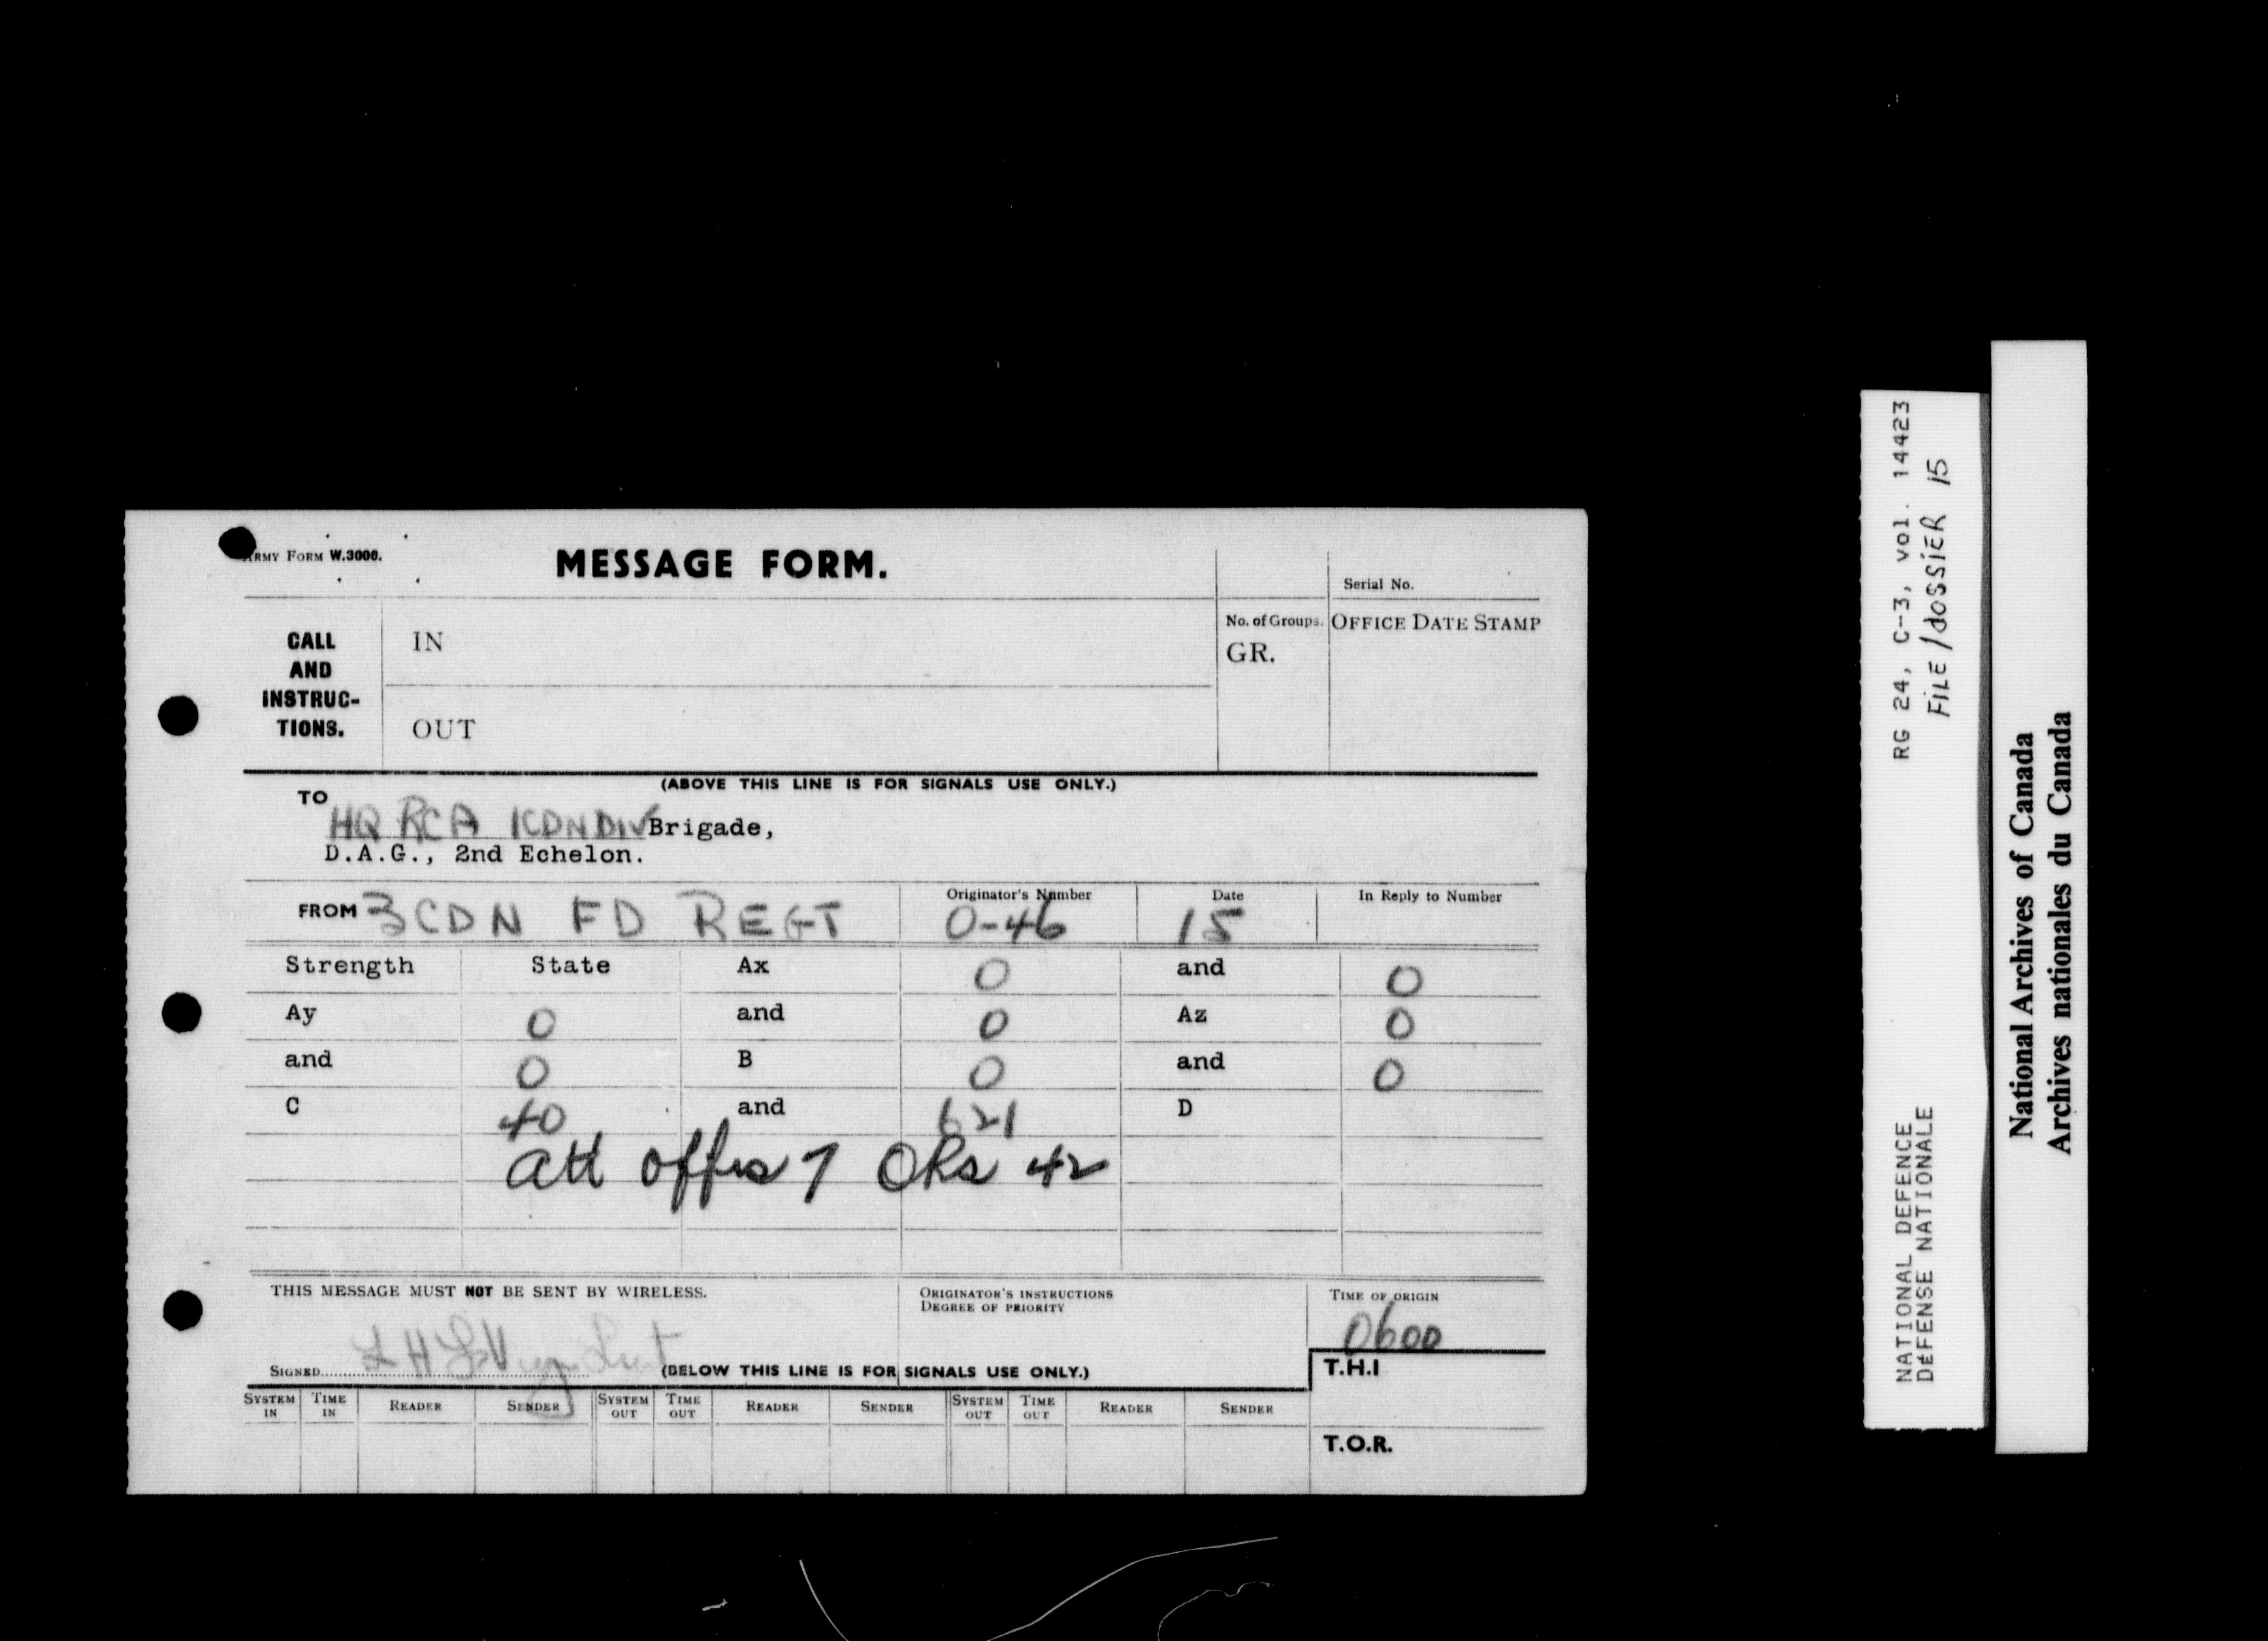 ARMY FORM W.3000.
MESSAGE FORM.
Serial No.
CALL AND INSTRUC- TIONS.
IN
OUT
No. of Groups.
GR.
OFFICE DATE STAMP
(ABOVE THIS LINE IS FOR SIGNALS USE ONLY.)
TO
HQ RCA 1 CDN DIV Brigade,
D.A.G., 2nd Echelon.
FROM 3 CDN FD REGT
Originator's Number
O-46
Date
15
In Reply to Number
Strength State Ax 0 and 0
Ay 0 and 0 Az 0
and 0 B 0 and 0
C 40 and 621 D
att offrs 7 ORs 42
THIS MESSAGE MUST NOT BE SENT BY WIRELESS.
ORIGINATOR'S INSTRUCTIONS
DEGREE OF PRIORITY
TIME OF ORIGIN
0600
SIGNED
(BELOW THIS LINE IS FOR SIGNALS USE ONLY.)
T.H.I
SYSTEM IN TIME IN READER SENDER SYSTEM OUT TIME OUT READER SENDER SYSTEM OUT TIME OUT READER SENDER
T.O.R.
NATIONAL DEFENCE RG 24, C-3, vol. 14423
DÉFENSE NATIONALE FILE/dOSSiER 15
National Archives of Canada
Archives nationales du Canada